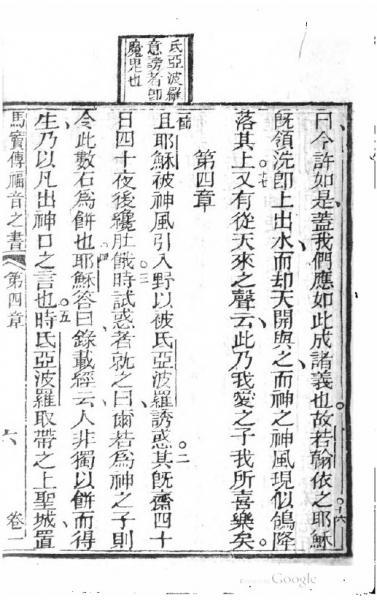 氏亞波羅
意謗者卽
魔鬼也
曰今許如是蓋我們應如此成諸義也故若翰依之。十六耶穌
旣領洗卽上出水而却天開與之而神之神風現似鴿降
落其上。十七又有從天來之聲云此乃我愛之子我所喜樂矣
第四章
且耶穌被神風引入野以彼氏亞波羅誘惑。二其旣齋四十
日四十夜後纔肚餓。三時試惑者就之曰爾若為神之子則
令此數石為餅也。四耶穌答曰錄載經云人非獨以餅而得
生乃以凡出神口之言也。五時氏亞波羅取帶之上聖城置
馬竇傳福音之書 第四章 六 卷一
Google